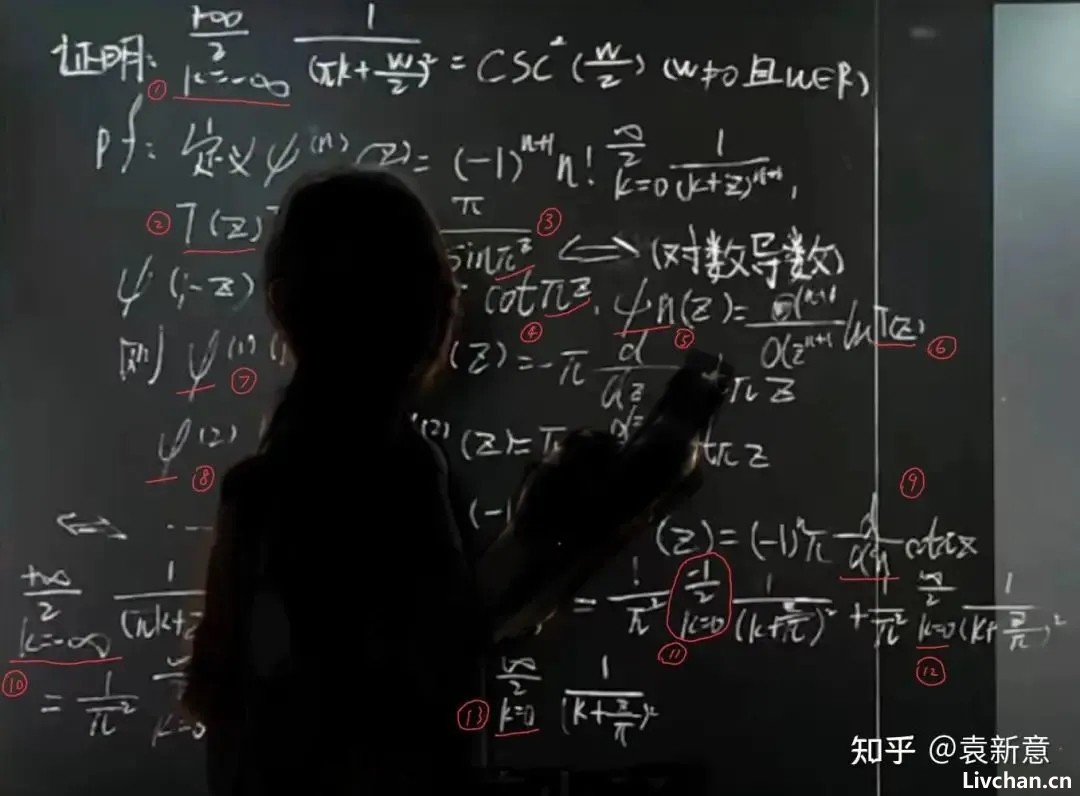 证明: +∞ 2 k=-∞ 1/(πk+w/2)² = CSC²(w/2) (w≠0且w∈R)
①
pf: 定义ψ^(n)(z)=(-1)^(n+1) n! ∞ 2 k=0 1/(k+z)^(n+1),
② T(z) π/sinπz ③ ⟺ (对数导数)
ψ(1-z) cotπz, ④ ψn(z)= ⑤ d^(n+1)/dz^(n+1) ln T(z) ⑥
则 ψ^(1) ⑦ (z)=-π d/dz πz
ψ^(2) ⑧ ^(2)(z)=π d² tπz
⟺ ... (-1) (z)=(-1)^n π d/dn cotπz ⑨
+∞ 2 k=-∞ 1/(πk+z = 1/π² -1 2 k=0 1/(k+z/π)² + 1/π² ∞ 2 k=0 1/(k+z/π)²
⑩ ⑪ ⑫
= 1/π² ∞ k=0 ⑬ ∞ 2 k=0 1/(k+z/π)²
知乎 @袁新意
Livchan.cn